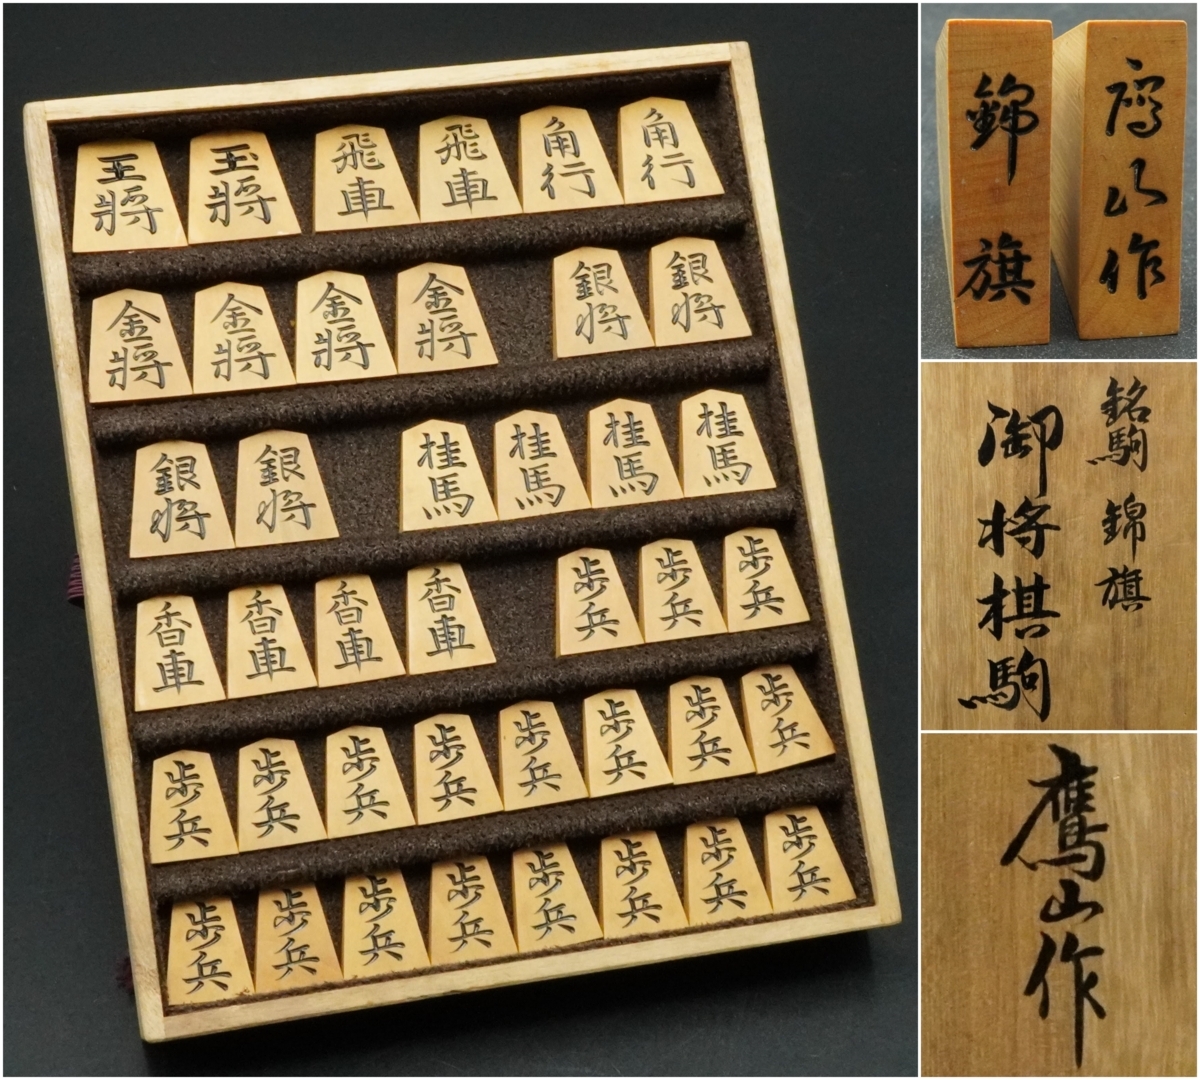 王將 玉將 飛車 飛車 角行 角行
金將 金將 金將 金將 銀将 銀将
銀将 銀将 桂馬 桂馬 桂馬 桂馬
香車 香車 香車 香車 歩兵 歩兵 歩兵
歩兵 歩兵 歩兵 歩兵 歩兵 歩兵 歩兵 歩兵
歩兵 歩兵 歩兵 歩兵 歩兵 歩兵 歩兵 歩兵
鷹山作
錦旗
銘駒 錦旗
御将棋駒
鷹山作